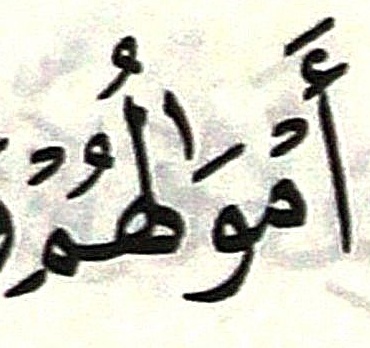 أَمْوَٰلُهُمْ